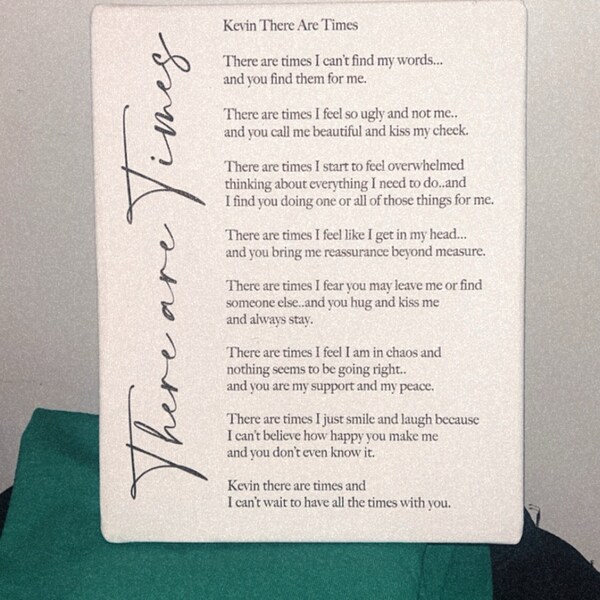 There are Times
Kevin There Are Times
There are times I can't find my words...
and you find them for me.
There are times I feel so ugly and not me..
and you call me beautiful and kiss my cheek.
There are times I start to feel overwhelmed
thinking about everything I need to do..and
I find you doing one or all of those things for me.
There are times I feel like I get in my head...
and you bring me reassurance beyond measure.
There are times I fear you may leave me or find
someone else..and you hug and kiss me
and always stay.
There are times I feel I am in chaos and
nothing seems to be going right..
and you are my support and my peace.
There are times I just smile and laugh because
I can't believe how happy you make me
and you don't even know it.
Kevin there are times and
I can't wait to have all the times with you.